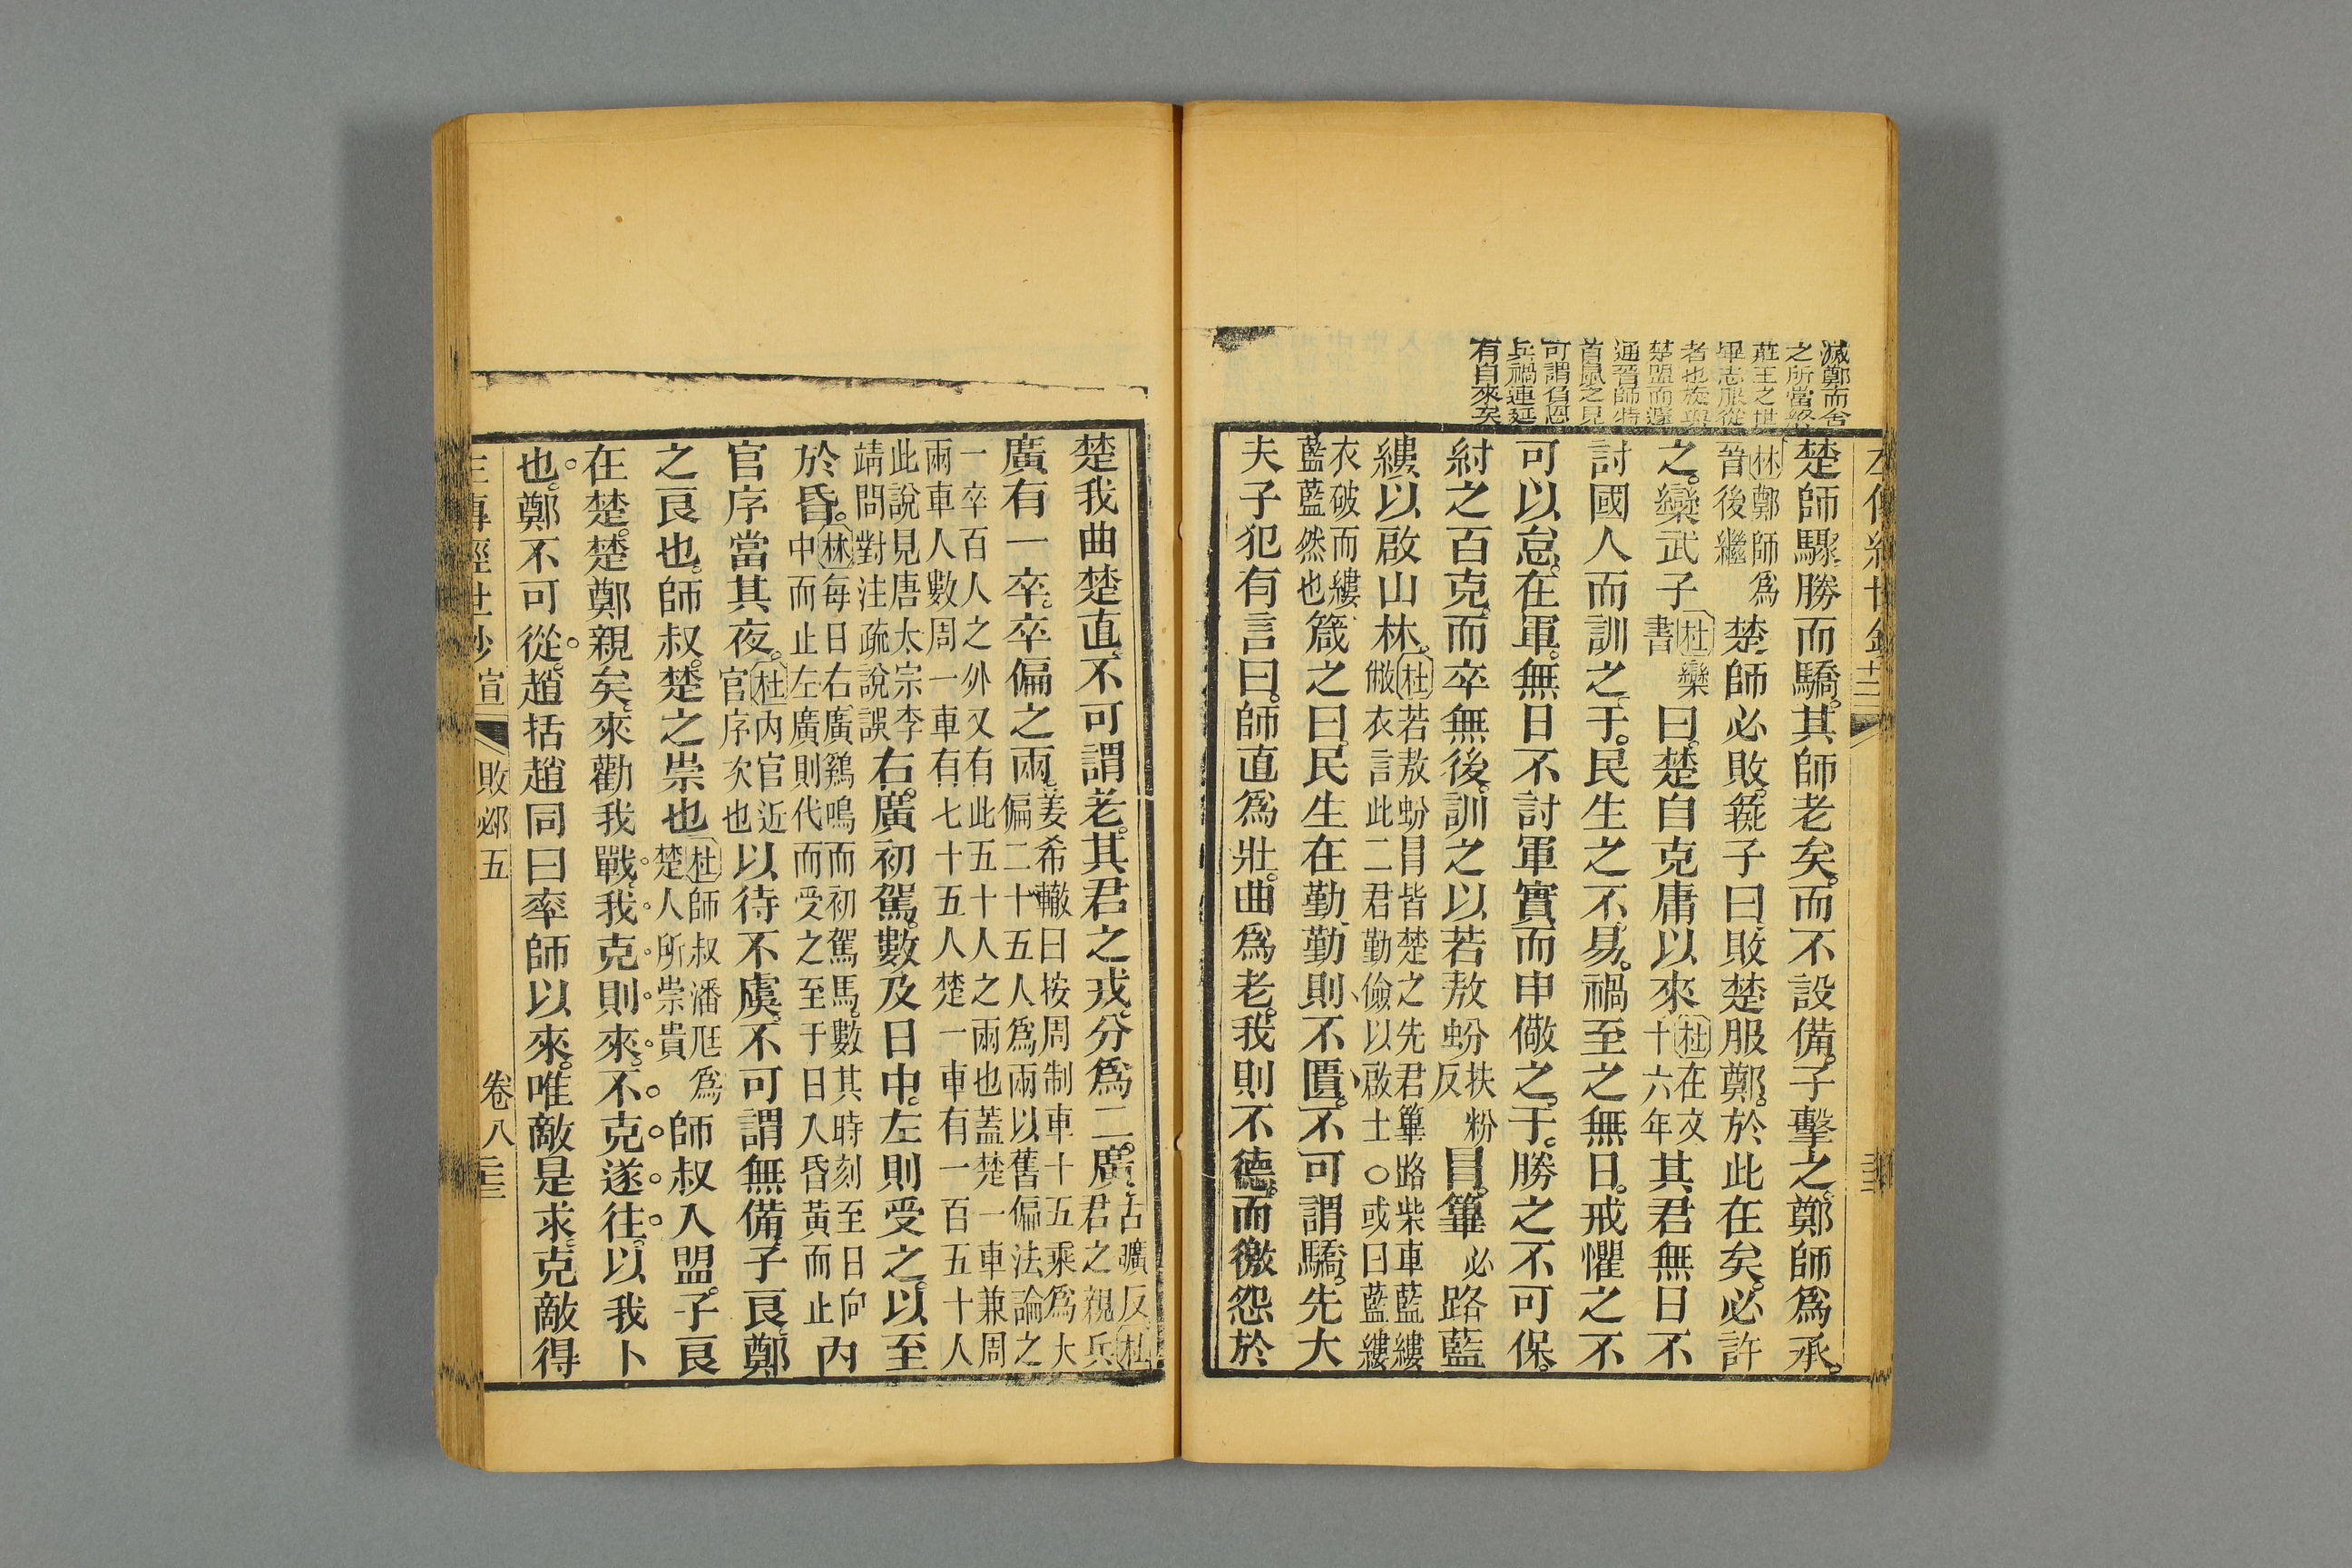 滅鄭而舍
之所當
莊王之世
畢志服從
者也旋與
楚盟而遂
通晉師特
首鼠之見
可謂
兵禍連延
有自來矣
楚師驟勝而驕其師老矣而不設備子擊之鄭師爲承
林鄭師爲晉後繼楚師必敗彘子曰敗楚服鄭於此在矣必許
之欒武子杜欒書曰楚自克庸以來杜在文十六年其君無日不
討國人而訓之于民生之不易禍至之無日戒懼之不
可以怠在軍無日不討軍實而申儆之于勝之不可保
紂之百克而卒無後訓之以若敖蚡扶粉反冒篳必路藍
縷以啟山林杜若敖蚡冒皆楚之先君篳路柴車藍縷敝衣言此二君勤儉以啟土○或曰藍縷
衣破而縷藍藍然也箴之曰民生在勤勤則不匱不可謂驕先大
夫子犯有言曰師直爲壯曲爲老我則不德而徼怨於
楚我曲楚直不可謂老其君之戎分爲二廣古曠反杜君之親兵
廣有一卒卒偏之兩姜希轍曰按周制車十五乘爲大偏二十五人爲兩以舊偏法論之
一卒百人之外又有此五十人之兩也蓋楚一車兼周兩車人數周一車有七十五人楚一車有一百五十人
此說見唐太宗李靖問對注疏說誤右廣初駕數及日中左則受之以至
於昏林每日右廣鷄鳴而初駕馬數其時刻至日向中而止左廣則代而受之至于日入昏黃而止內
官序當其夜杜內官近官序次也以待不虞不可謂無備子良鄭
之良也師叔楚之崇也杜師叔潘尪爲楚人所崇貴師叔入盟子良
在楚楚鄭親矣來勸我戰我克則來不克遂往以我卜
也鄭不可從趙括趙同曰率師以來唯敵是求克敵得
左傳經世鈔宣 敗必邲五 卷八